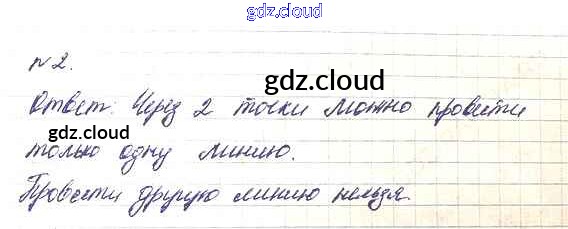 gdz.cloud
№2.
gdz.cloud
Ответ: Через 2 точки можно провести
gdz.cloud
только одну линию.
Провести другую линию нельзя.
gdz.cloud